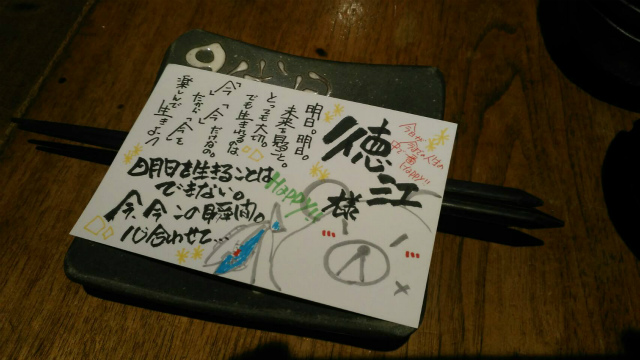 徳江
様
今日が
今までの人生の
中で一番
HAPPY!!
明日。明日。
未来を見ること。
とっても大切。
でも生きれるのは
「今」「今」だけなの。
だから「今を
楽しんで
生きよっ
明日を生きることは
できない。
今、今この瞬間。
心合わせて…
Happy!!